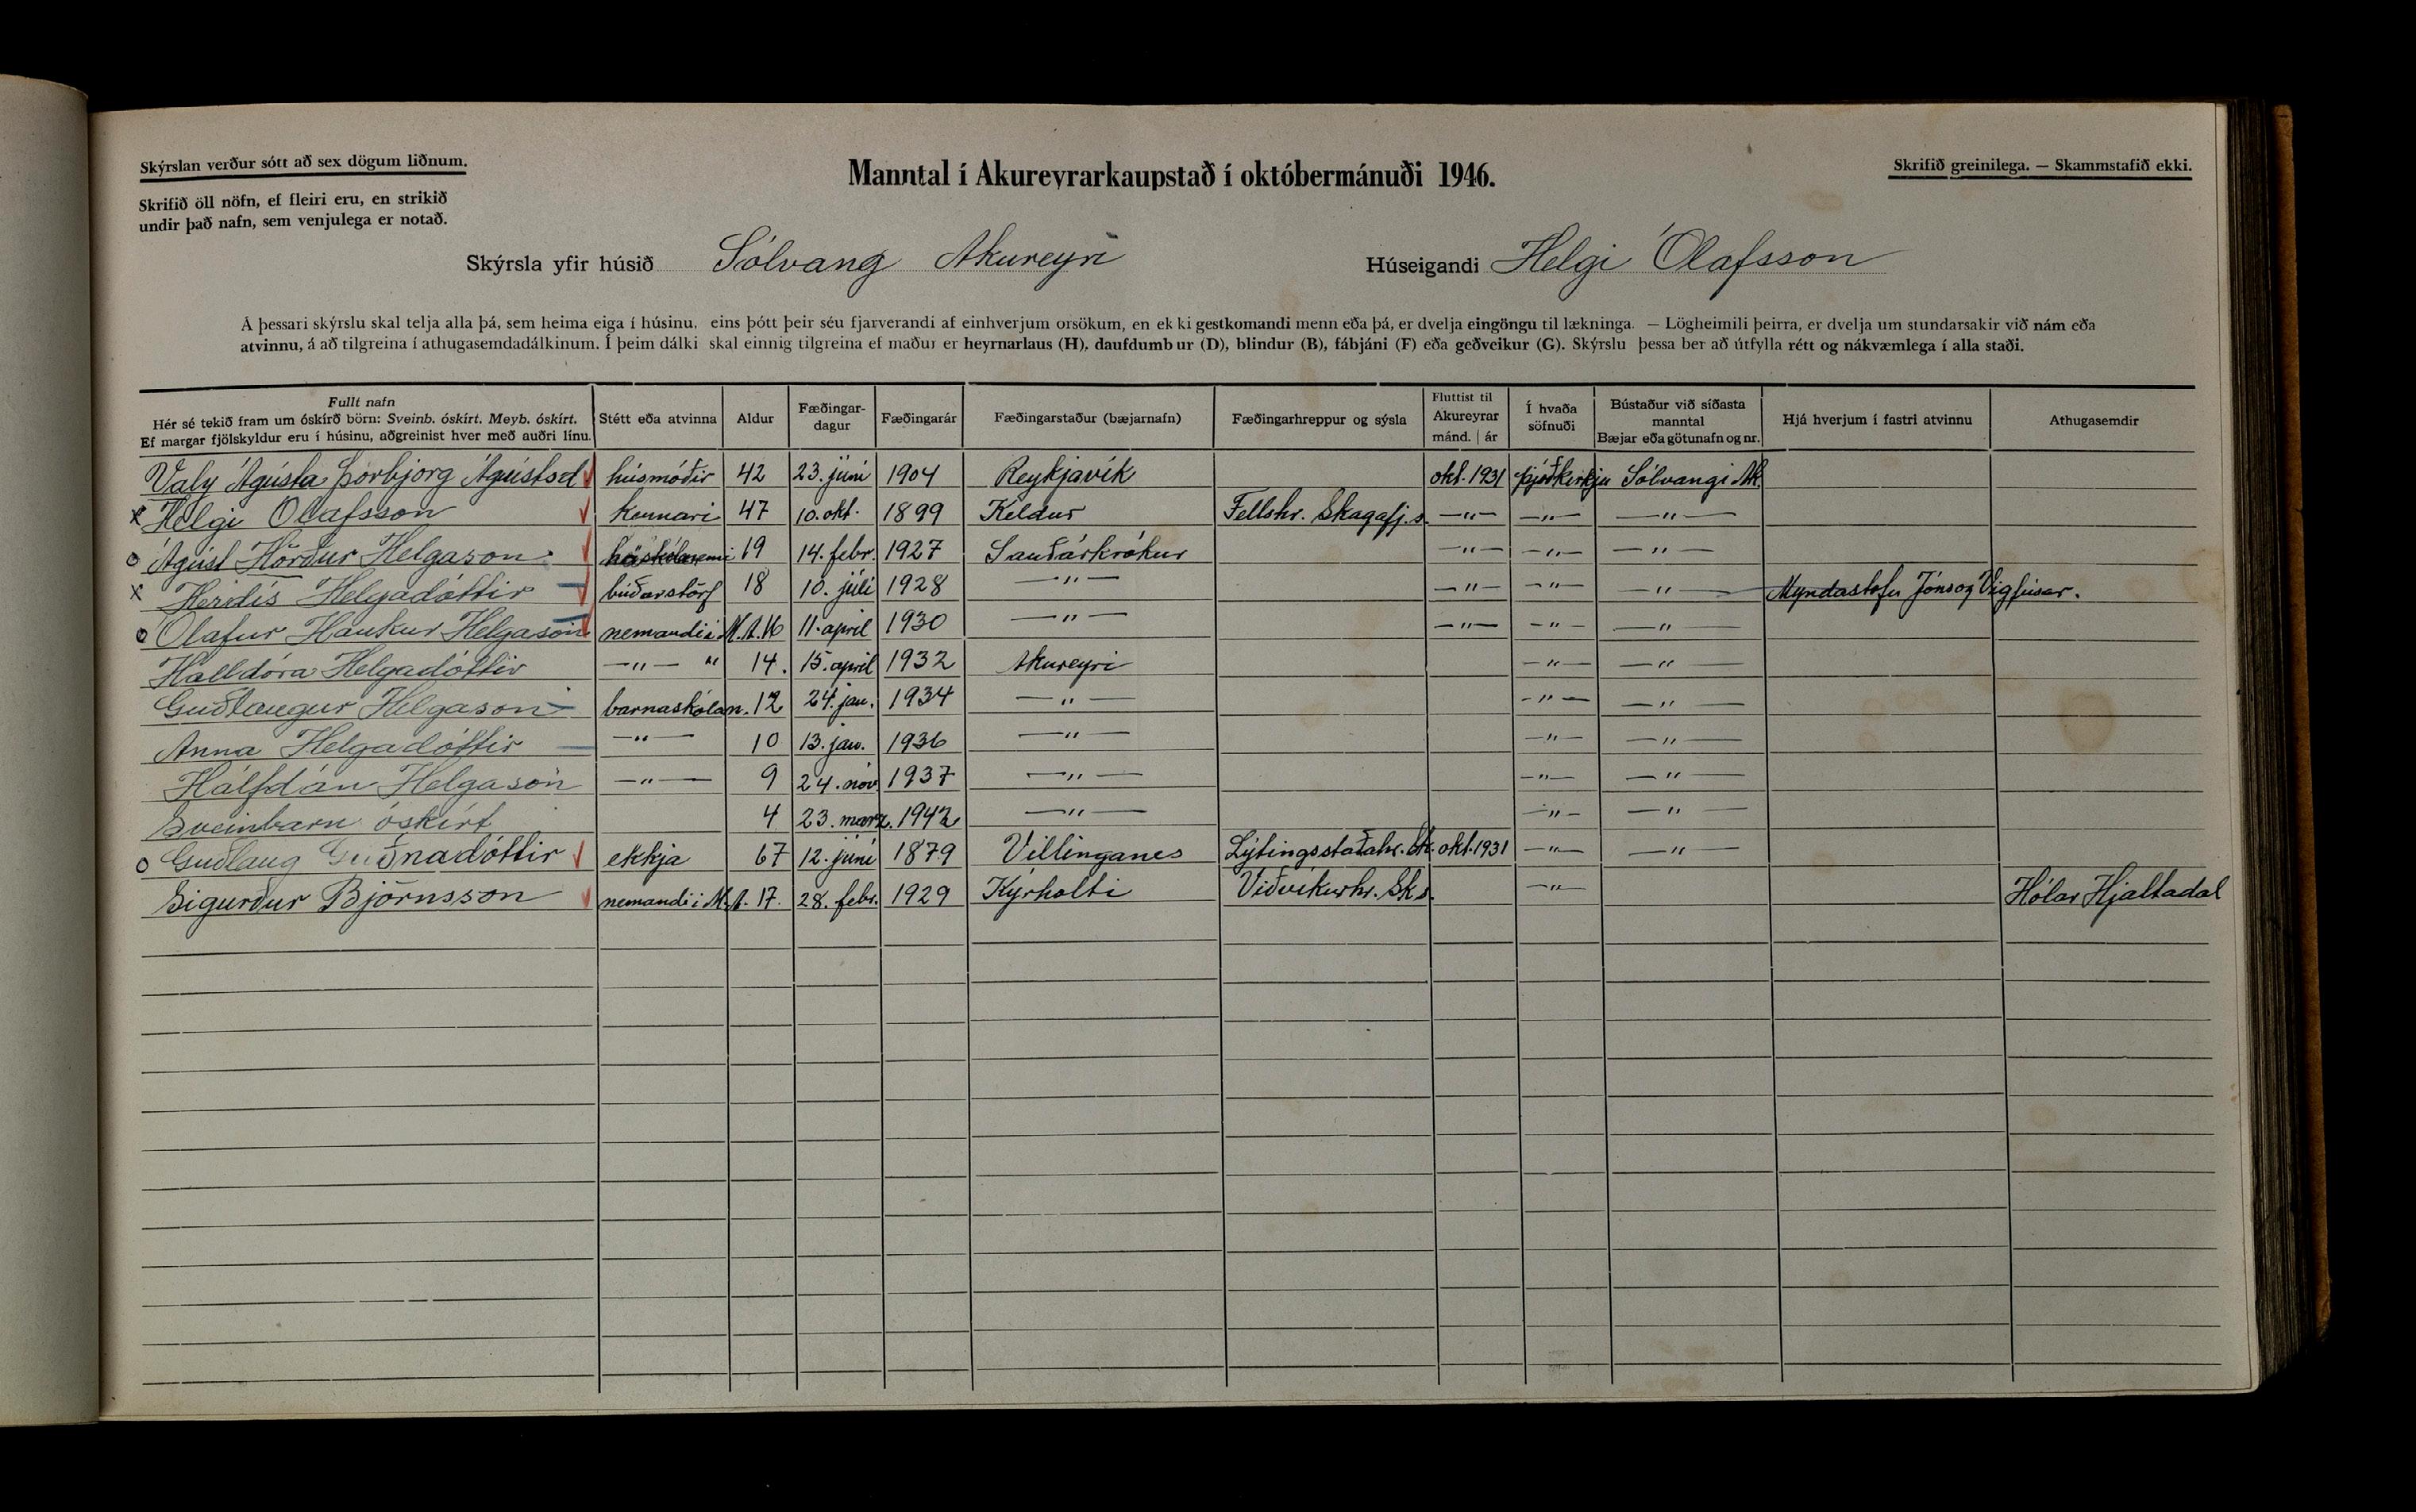 Skýrslan verður sótt að sex dögum liðnum.
Skrifið öll nöfn, ef fleiri eru, en strikið
undir það nafn, sem venjulega er notað.
Manntal í Akureyrarkaupstað í októbermánuði 1946.
Skrifið greinilega. — Skammstafið ekki.
Skýrsla yfir húsið Sólvang Akureyri Húseigandi Helgi Ólafsson
Á þessari skýrslu skal telja alla þá, sem heima eiga í húsinu, eins þótt þeir séu fjarverandi af einhverjum orsökum, en ekki gestkomandi menn eða þá, er dvelja eingöngu til lækninga. — Lögheimili þeirra, er dvelja um stundarsakir við nám eða
atvinnu, á að tilgreina í athugasemdadálkinum. Í þeim dálki skal einnig tilgreina ef maður er heyrnarlaus (H), daufdumbur (D), blindur (B), fábjáni (F) eða geðveikur (G). Skýrslu þessa ber að útfylla rétt og nákvæmlega í alla staði.
Fullt nafn
Hér sé tekið fram um óskírð börn: Sveinb. óskírt. Meyb. óskírt.
Ef margar fjölskyldur eru í húsinu, aðgreinist hver með auðri línu.
Stétt eða atvinna
Aldur
Fæðingar-
dagur
Fæðingarár
Fæðingarstaður (bæjarnafn)
Fæðingarhreppur og sýsla
Fluttist til
Akureyrar
mánd. | ár
Í hvaða
söfnuði
Bústaður við síðasta
manntal
Bæjar eða götunafn og nr.
Hjá hverjum í fastri atvinnu
Athugasemdir
Valy Ágústa Þorbjorg Ágústsd húsmóðir 42 23. júní 1904 Reykjavík okt. 1931 þjóðkirkju Sólvangi Ak.
x Helgi Olafsson kennari 47 10. okt. 1899 Keldur Fellshr. Skagafj.s. —"— —"— —"—
o Ágúst Hörður Helgason háskólanemi 19 14. febr. 1927 Sauðárkrókur —"— —"— —"—
x Herdís Helgadóttir búðarstörf 18 10. júlí 1928 —"— —"— —"— —"— Myndastofu Jóns og Vigfúsar.
o Olafur Haukur Helgason nemandi í M.A. 16 11. april 1930 —"— —"— —"— —"—
Halldóra Helgadóttir —"— " 14. 15. april 1932 Akureyri —"— —"—
Guðlaugur Helgason barnaskólan. 12 24. jan. 1934 —"— —"— —"—
Anna Helgadóttir —"— 10 13. jan. 1936 —"— —"— —"—
Hálfdán Helgason —"— 9 24. nóv. 1937 —"— —"— —"—
Sveinbarn óskírt 4 23. marz. 1942 —"— —"— —"—
o Guðlaug Guðnadóttir ekkja 67 12. júní 1879 Villinganes Lýtingsstaðahr. Sk. okt. 1931 —"— —"—
Sigurður Björnsson nemandi í M.A. 17. 28. febr. 1929 Kýrholti Viðvíkurhr. Sk.s. —"— Hólar Hjaltadal